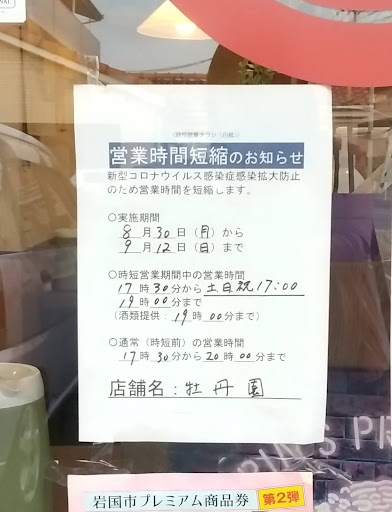 営業時間短縮のお知らせ
新型コロナウイルス感染症感染拡大防止
のため営業時間を短縮します。
○実施期間
8月30日(月)から
9月12日(日)まで
○時短営業期間中の営業時間
17時30分から土日祝17:00
19時00分まで
(酒類提供:19時00分まで)
○通常(時短前)の営業時間
17時30分から20時00分まで
店舗名:牡丹園
岩国市プレミアム商品券 第2弾